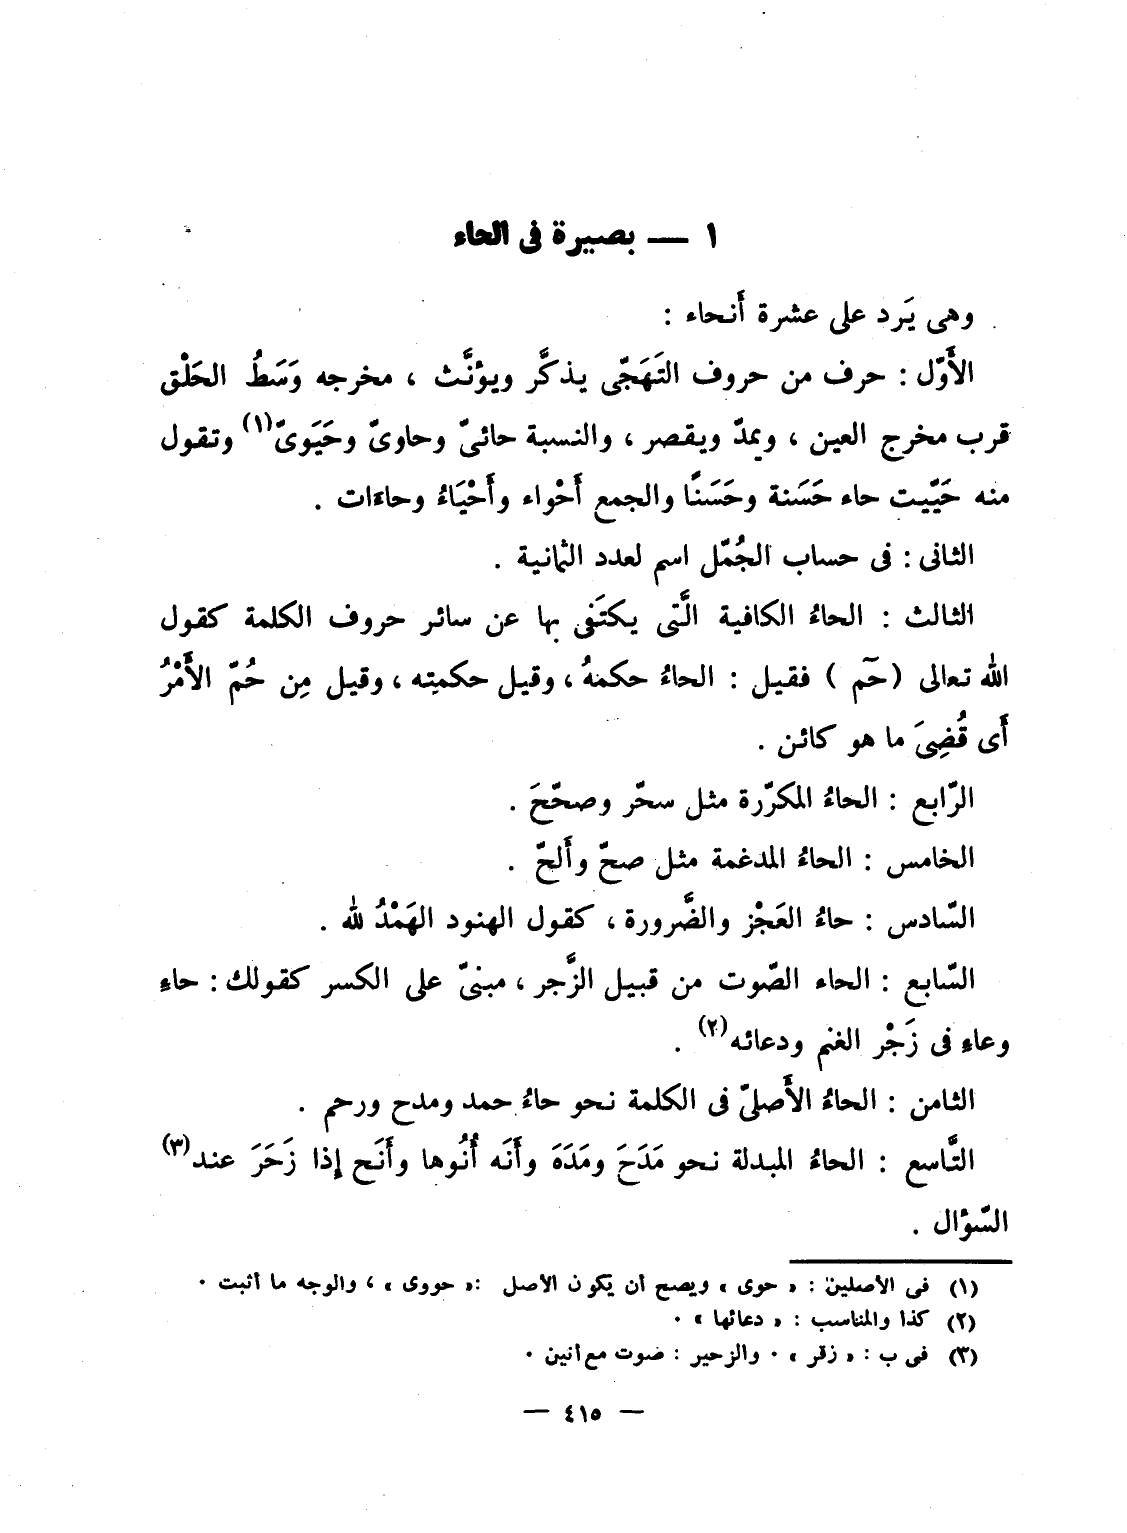 ١ — بصيرة فى الحاء
وهى يَرد على عشرة أَنحاء :
الأَوّل : حرف من حروف التَهَجّى يذكَّر ويؤنَّث ، مخرجه وَسَطُ الحَلْق
قرب مخرج العين ، ويمدّ ويقصر ، والنسبة حائىّ وحاوىّ وحَيَوىّ(١) وتقول
منه حَيّيت حاء حَسَنة وحَسَنًا والجمع أَحْواء وأَحْيَاءُ وحاءَات .
الثانى : فى حساب الجُمّل اسم لعدد الثمانية .
الثالث : الحاءُ الكافية الَّتى يكتَفى بها عن سائر حروف الكلمة كقول
الله تعالى (حَم ) فقيل : الحاءُ حكمهُ ، وقيل حكمتِه ، وقيل مِن حُمّ الأَمْرُ
أَى قُضِىَ ما هو كائن .
الرّابع : الحاءُ المكرّرة مثل سحّر وصحّحَ .
الخامس : الحاءُ المدغمة مثل صحّ وأَلحّ .
السّادس : حاءُ العَجْز والضَّرورة ، كقول الهنود الهَمْدُ لله .
السّابع : الحاء الصّوت من قبيل الزَّجر ، مبنىّ على الكسر كقولك : حاءِ
وعاءِ فى زَجْر الغنم ودعائه(٢) .
الثامن : الحاءُ الأَصلىّ فى الكلمة نحو حاءُ حمد ومدح ورحم .
التَّاسع : الحاءُ المبدلة نحو مَدَحَ ومَدَهَ وأَنَه أُنُوها وأَنَح إِذا زَحَرَ عند(٣)
السّؤال .
(١) فى الأصلين : « حوى » ويصح أن يكون الأصل :« حووى » ، والوجه ما أثبت .
(٢) كذا والمناسب : « دعائها » .
(٣) فى ب : « زقر » . والزحير : صوت مع أنين .
— ٤١٥ —